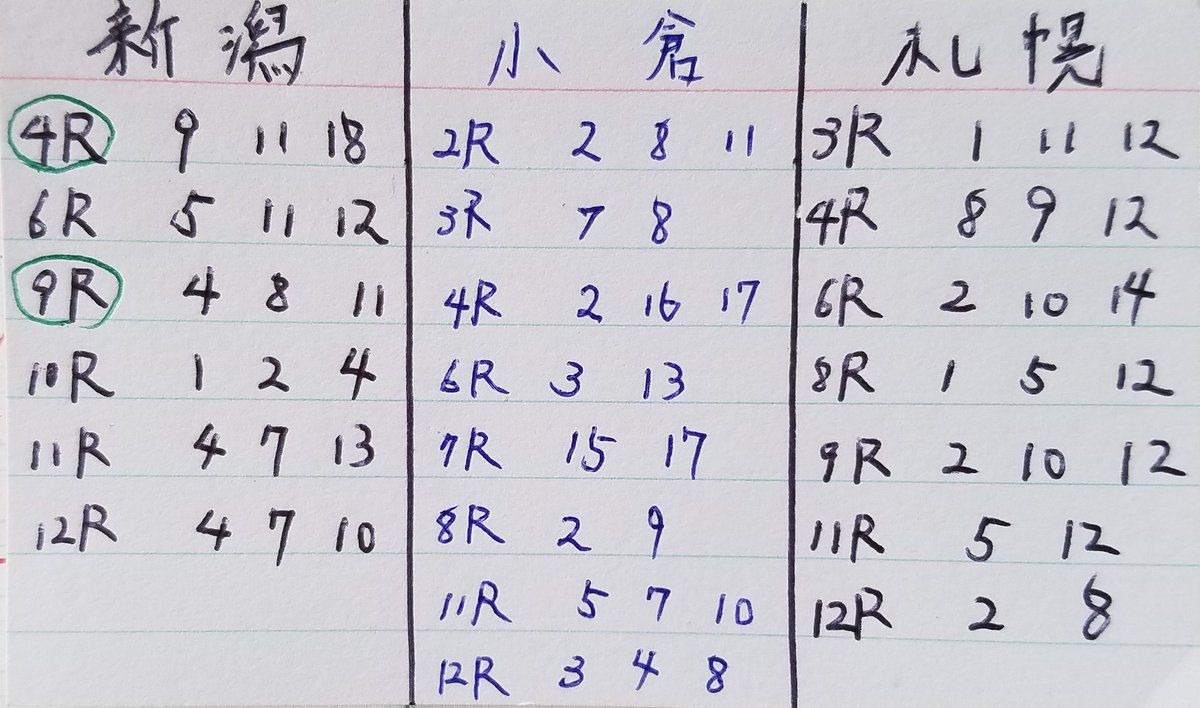 新潟
4R 9 11 18
6R 5 11 12
9R 4 8 11
10R 1 2 4
11R 4 7 13
12R 4 7 10
小倉
2R 2 8 11
3R 7 8
4R 2 16 17
6R 3 13
7R 15 17
8R 2 9
11R 5 7 10
12R 3 4 8
札幌
3R 1 11 12
4R 8 9 12
6R 2 10 14
8R 1 5 12
9R 2 10 12
11R 5 12
12R 2 8